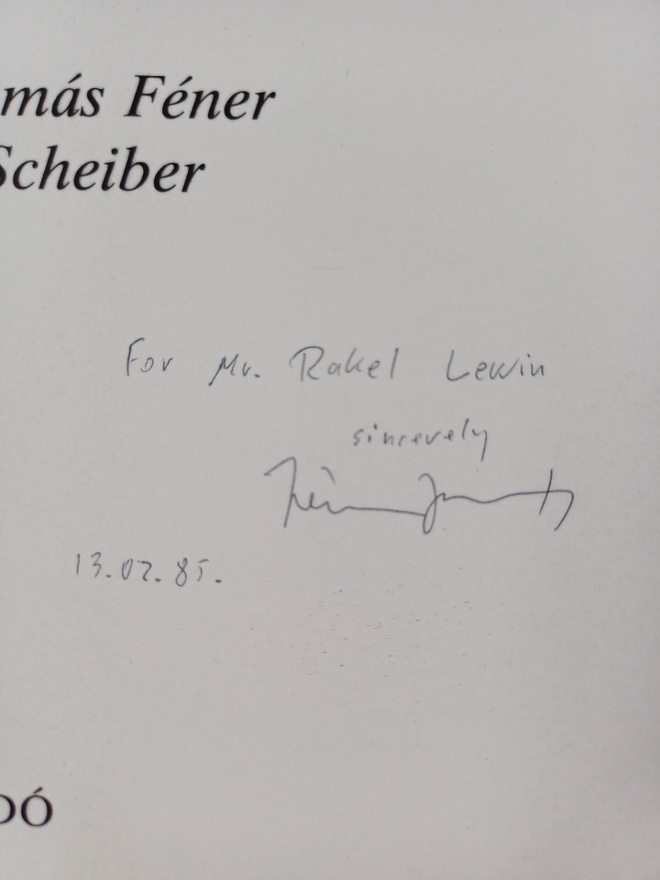 más Féner
Scheiber
For Mr. Rakel Lewin
sincerely
13.02.85.
DÓ